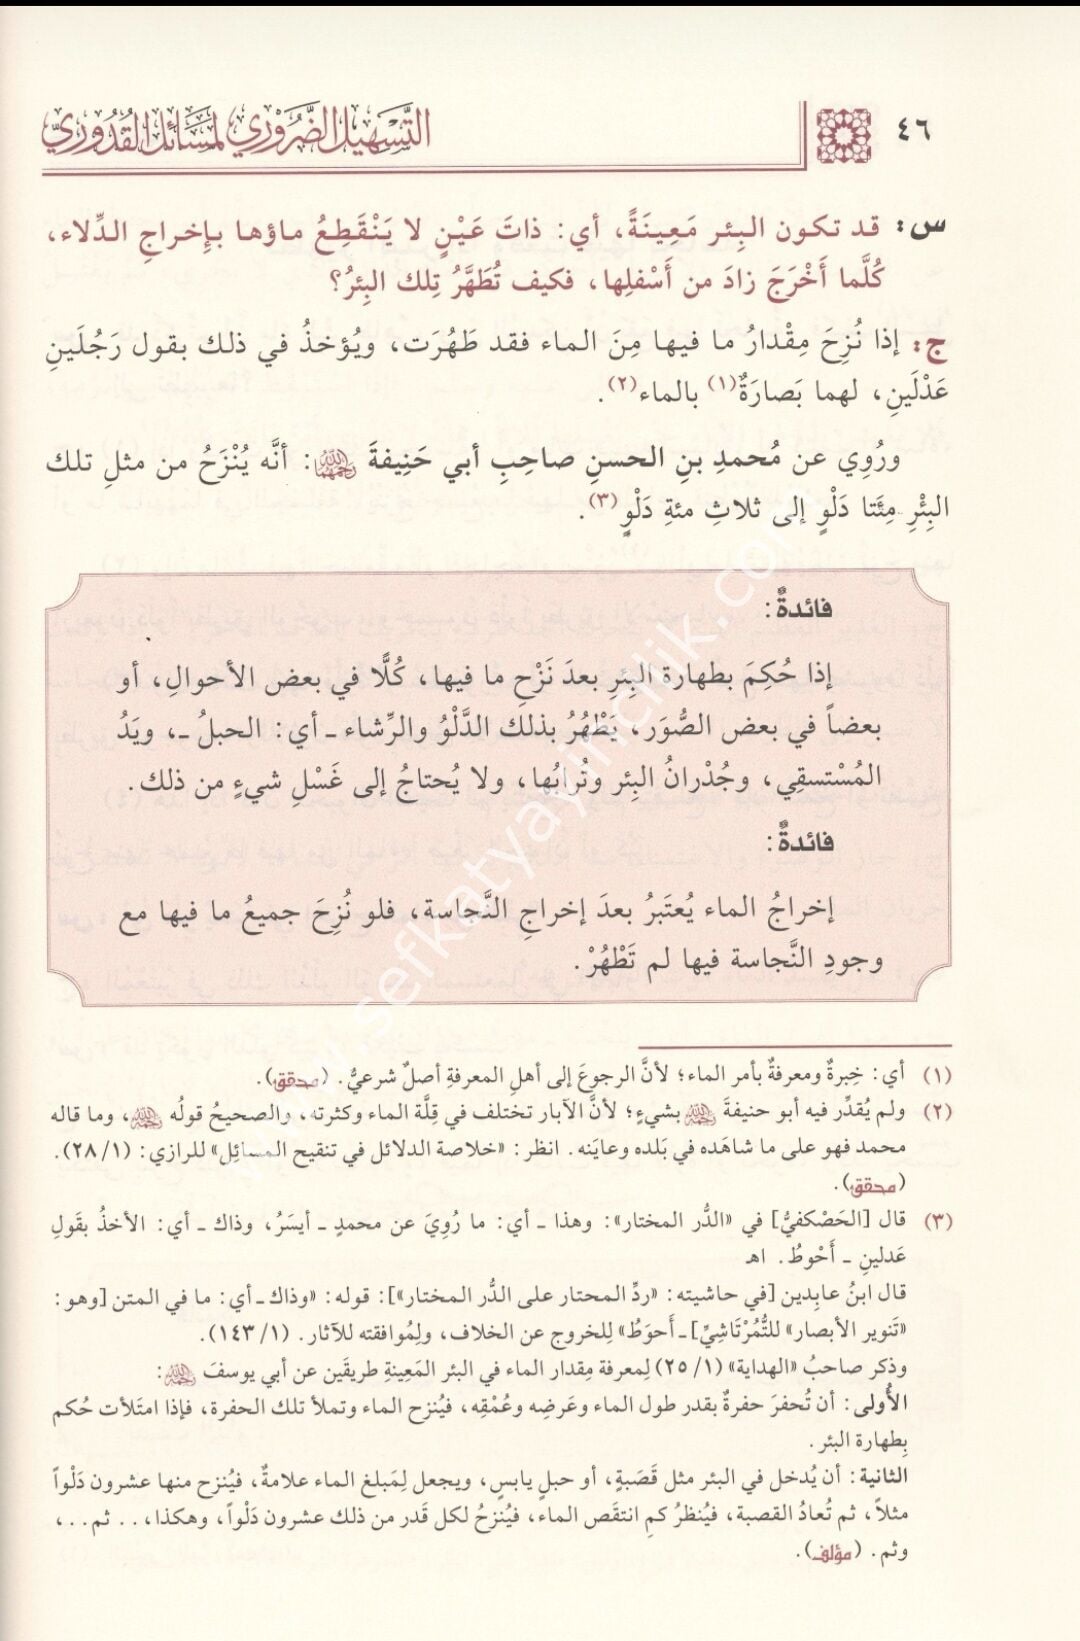 ٤٦
التَّسْهِيلُ الضَّرُورِي لِمَسَائِلِ القُدُورِيّ
س: قد تكون البِئر مَعِينَةً، أي: ذاتَ عَيْنٍ لا يَنْقَطِعُ ماؤها بإخراجِ الدِّلاء،
كُلَّما أَخْرَجَ زادَ من أَسْفلِها، فكيف تُطَهَّرُ تِلك البِئرُ؟
ج: إذا نُزِحَ مِقْدارُ ما فيها مِنَ الماء فقد طَهُرَت، ويُؤخذُ في ذلك بقول رَجُلَينِ
عَدْلَينِ، لهما بَصارَةٌ(١) بالماء(٢).
ورُوِي عن مُحمدِ بنِ الحسنِ صاحِبِ أبي حَنِيفةَ رحمهما الله: أنَّه يُنْزَحُ من مثلِ تلك
البِئْرِ مِئَتا دَلْوٍ إلى ثلاثِ مئةِ دَلْوٍ(٣).
فائدةٌ:
إذا حُكِمَ بطهارة البِئرِ بعدَ نَزْحِ ما فيها، كُلًّا في بعض الأحوالِ، أو
بعضاً في بعض الصُّوَر، يَطْهُرُ بذلك الدَّلْوُ والرِّشاء ـ أي: الحبلُ ـ، ويَدُ
المُسْتسقِي، وجُدْرانُ البِئر وتُرابُها، ولا يُحتاجُ إلى غَسْلِ شيءٍ من ذلك.
فائدةٌ:
إخراجُ الماء يُعتَبرُ بعدَ إخراجِ النَّجاسة، فلو نُزِحَ جميعُ ما فيها مع
وجودِ النَّجاسة فيها لم تَطْهُرْ.
(١) أي: خِبرةٌ ومعرفةٌ بأمر الماء؛ لأنَّ الرجوعَ إلى أهلِ المعرفةِ أصلٌ شرعيٌّ. (محقق).
(٢) ولم يُقدِّر فيه أبو حنيفةَ رحمه الله بشيءٍ؛ لأنَّ الآبار تختلف في قِلَّة الماء وكثرته، والصحيحُ قولُه رحمه الله، وما قاله
محمد فهو على ما شاهَده في بَلده وعايَنه. انظر: «خلاصة الدلائل في تنقيح المسائِل» للرازي: (٢٨/١).
(محقق).
(٣) قال [الحَصْكفيُّ] في «الدُّر المختار»: وهذا ـ أي: ما رُوِيَ عن محمدٍ ـ أيسَرُ، وذاك ـ أي: الأخذُ بقَولِ
عَدلينِ ـ أَحْوطُ. اهـ
قال ابنُ عابِدين [في حاشيته: «ردِّ المحتار على الدُّر المختار»]: قوله: «وذاك ـ أي: ما في المتن [وهو:
«تَنوير الأبصار» للتُّمُرْتَاشِيِّ] ـ أحوَطُ» لِلخروج عن الخلاف، ولِمُوافقته للآثار. (١/ ١٤٣).
وذكر صاحبُ «الهداية» (١/ ٢٥) لِمعرفة مِقدار الماء في البئر المَعِينةِ طريقَين عن أبي يوسفَ رحمه الله:
الأُولى: أن تُحفرَ حفرةٌ بقدر طول الماء وعَرضِه وعُمْقِه، فيُنزح الماء وتملأ تلك الحفرة، فإذا امتَلأت حُكم
بِطهارة البئر.
الثانية: أن يُدخل في البئر مثل قَصَبةٍ، أو حبلٍ يابسٍ، ويجعل لِمَبلغ الماء علامةٌ، فيُنزح منها عشرون دَلْواً
مثلاً، ثم تُعادُ القصبة، فيُنظرُ كمِ انتقَص الماء، فيُنزحُ لكل قَدر من ذلك عشرون دَلْواً، وهكذا،.. ثم..،
وثم. (مؤلف).
www.sefkatyayincilik.com